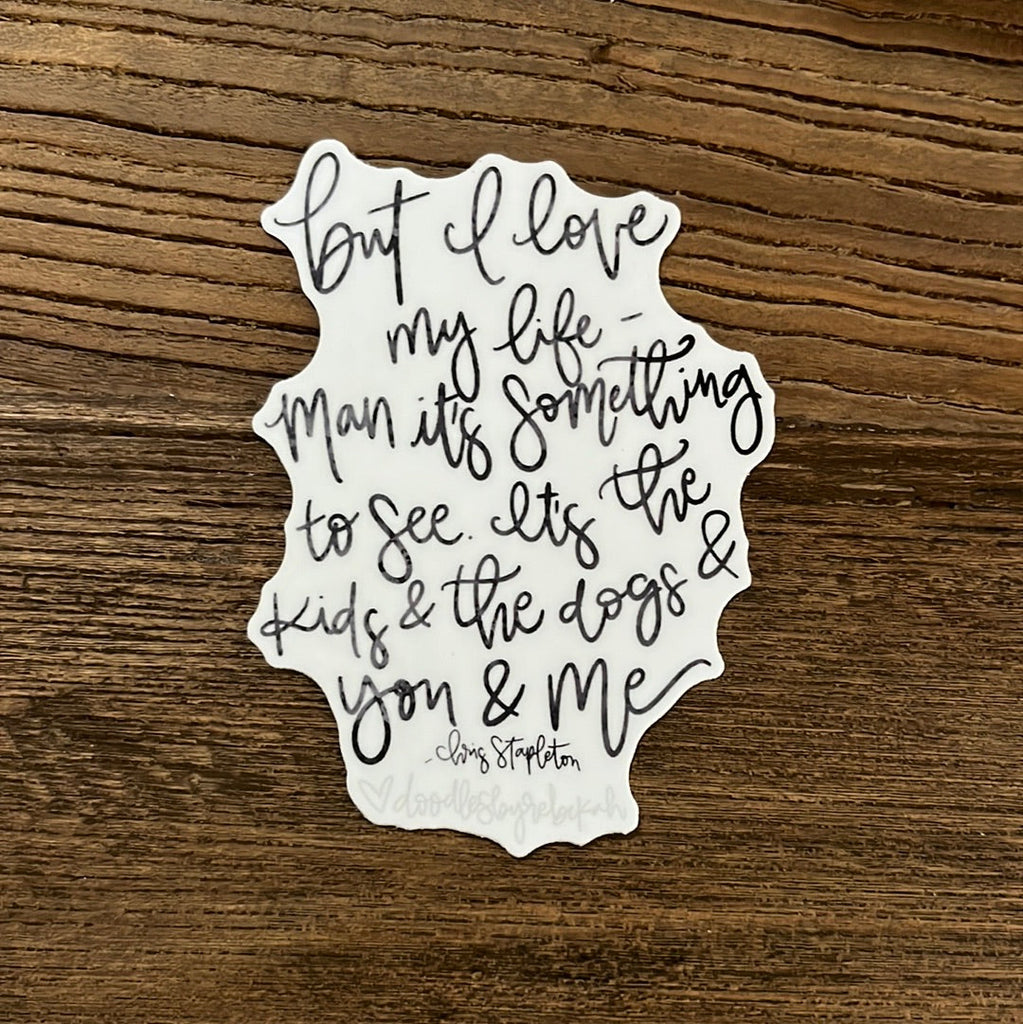 but I love
my life -
Man it's something
to see. It's the
kids & the dogs &
you & me
- Chris Stapleton
♡doodlesbyrebekah